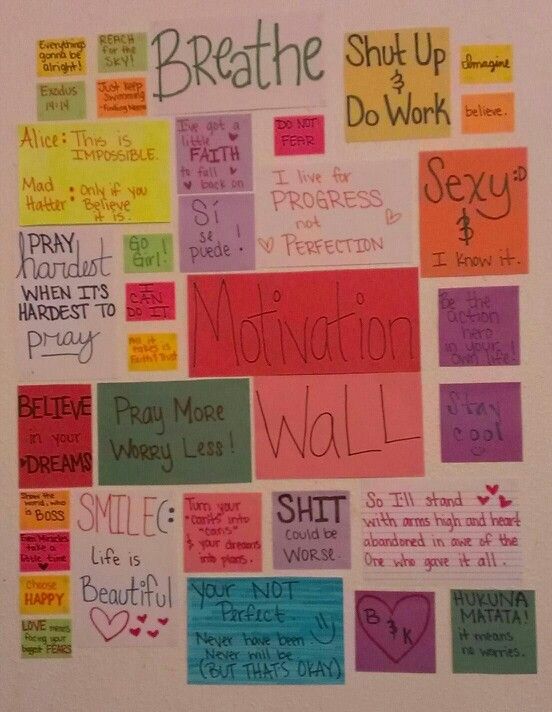 Everythings
gonna be
alright!
REACH
for the
SKY!
BReathe
Shut Up
&
Do Work
Imagine
believe.
Exodus
14:14
Just keep
Swimming
-Finding Nemo
Alice: This is
IMPOSSIBLE.
Mad
Hatter: Only if you
Believe
it is.
I've got a
little
FAITH
to fall
back on
DO NOT
FEAR
I live for
PROGRESS
not
PERFECTION
Sexy :D
&
I know it.
Sí
se
puede!
PRAY
hardest
WHEN IT'S
HARDEST TO
pray
Go
Girl!
I
CAN
DO IT
All it
takes is
Faith & Trust
Motivation
WaLL
Be the
action
hero
in your
own life!
Stay
cool
BELIEVE
in your
DREAMS
PRAY MORE
WORRY LESS!
Show the
world who
is BOSS
Even Miracles
take a
little time
Choose
HAPPY
LOVE means
facing your
biggest FEARS
SMILE(:
Life is
Beautiful
Turn your
"can'ts" into
"cans"
& your dreams
into plans.
SHIT
could be
WORSE.
So I'll stand
with arms high and heart
abandoned in awe of the
One who gave it all.
Your NOT
Perfect.
Never have been
Never will be
(BUT THATS OKAY)
B
&
K
HUKUNA
MATATA!
it means
no worries.